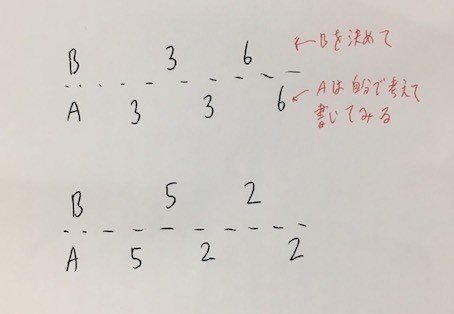 B 3 6 ←Bを決めて
A 3 3 6 ←Aは自分で考えて
書いてみる
B 5 2
A 5 2 2